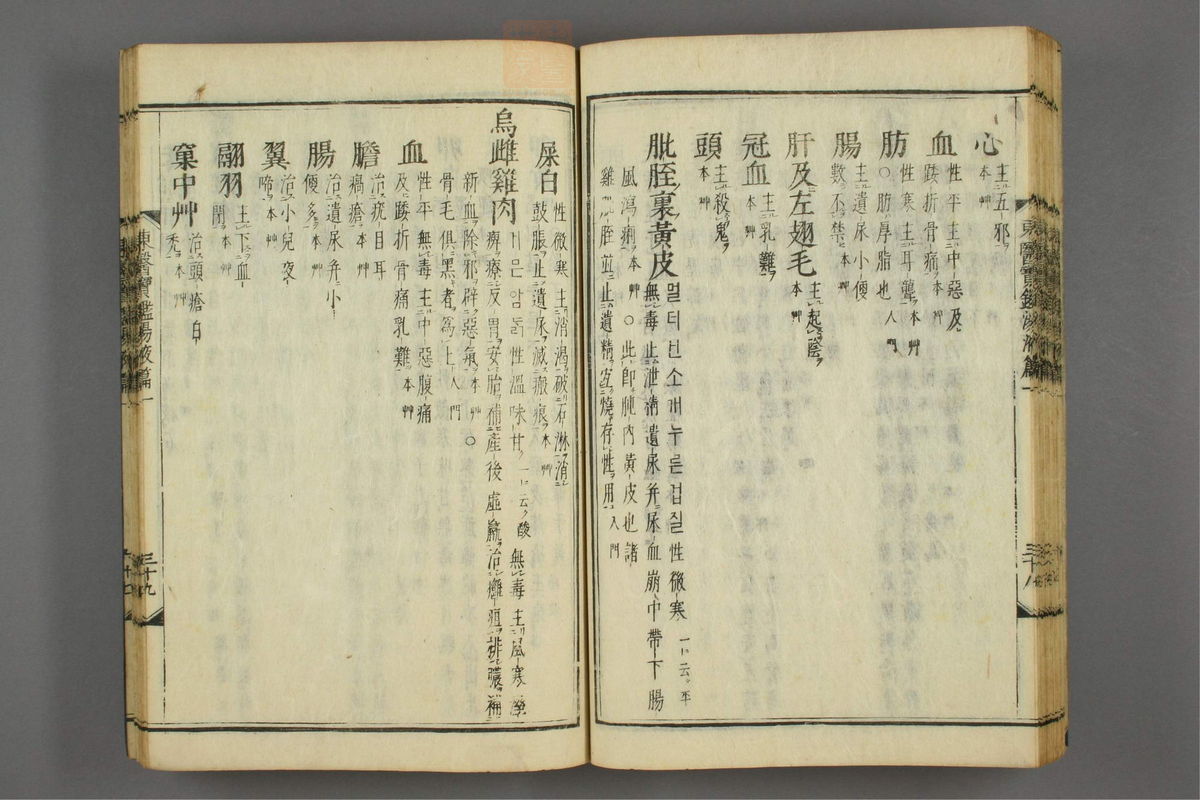 心
主五邪
本艸
血
性平主中惡及
踒折骨痛本艸
肪
性寒主耳聾本艸
○肪厚脂也入門
腸
主遺尿小便
數不禁本艸
肝及左翅毛
主起陰
本艸
冠血
主乳難
本艸
頭
主殺鬼
本艸
肶胵裏黃皮
멀더구니소개누른겁질性微寒一云平
無毒止泄精遺尿并尿血崩中帶下腸
風瀉痢本艸○此卽肫內黃皮也諸
雞肶胵並止遺精宜燒存性用入門
東醫寶鑑湯液篇一
三十八
屎白
性微寒主消渴破石淋消
鼓脹止遺尿滅瘢痕本艸
烏雌雞肉
거믄암ᄃᆞᆰ性溫味甘一云酸無毒主風寒濕
痺療反胃安胎補產後虛羸治癰疽排膿補
新血除邪辟惡氣本艸○
骨毛俱黑者爲上入門
血
性平無毒主中惡腹痛
及踒折骨痛乳難本艸
膽
治疣目耳
瘑瘡本艸
腸
治遺尿并小
便多本艸
翼
治小兒夜
啼本艸
翮羽
主下血
閉本艸
窠中艸
治頭瘡白
禿本艸
東醫寶鑑湯液篇一
三十九